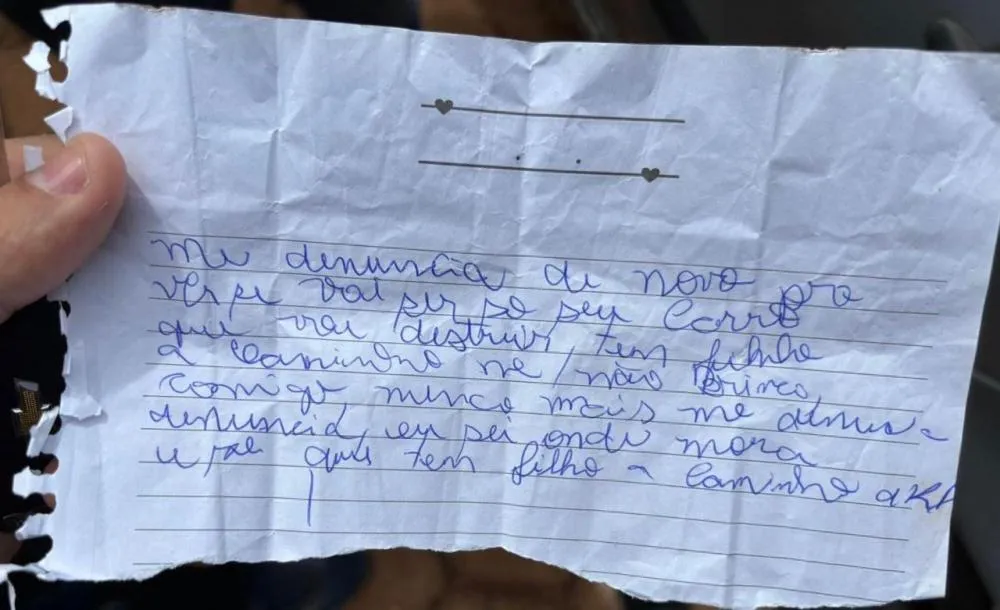 me denuncia de novo pra
ver se vai ser so seu carro
que vai distruir, tem filho
a caminho né, não brinca
comigo nunca mais me
denuncia, eu sei onde mora
e que tem filho a caminho